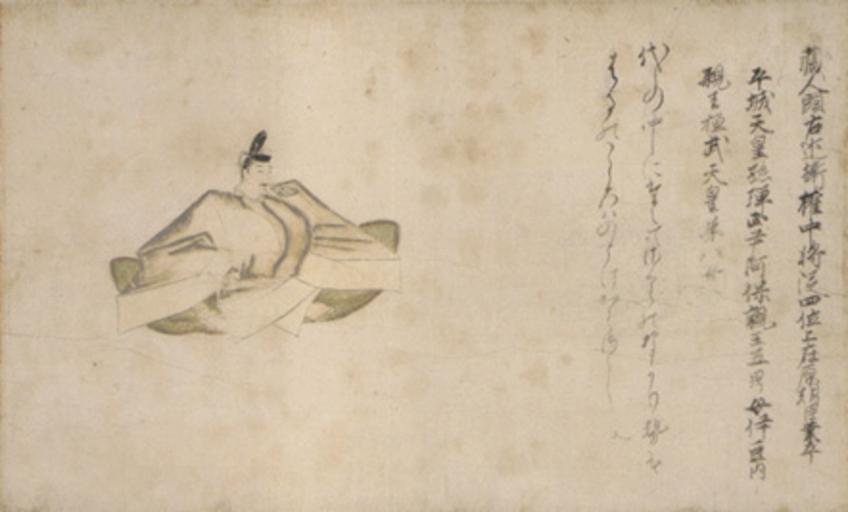 蔵人頭右近衛権中将従四位上在原朝臣業平
平城天皇孫弾正尹阿保親王五男母伊豆内
親王桓武天皇第八女
世の中にたえてさくらのなかり勢は
はるのこころはのとけからまし